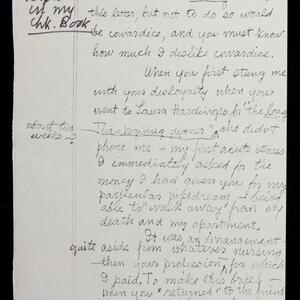 in my
chk. Book
this letter, but not to do so would
be cowardice, and you must know
how much I dislike cowardice.
When you first stung me
with your disloyalty when you
went to Laura Harding's for "the long
Thanksgiving dinner", and didn't
phone me – my first acute illness
about two
weeks –
I immediately asked for the
money I had given you for my
particular pipedream – being
able to "walk away" from my
death and my apartment.
It was an arrangement –
quite aside from whatever nursing –
then your profession, for which
I paid. To make this brief –
when you "returned" to the friend